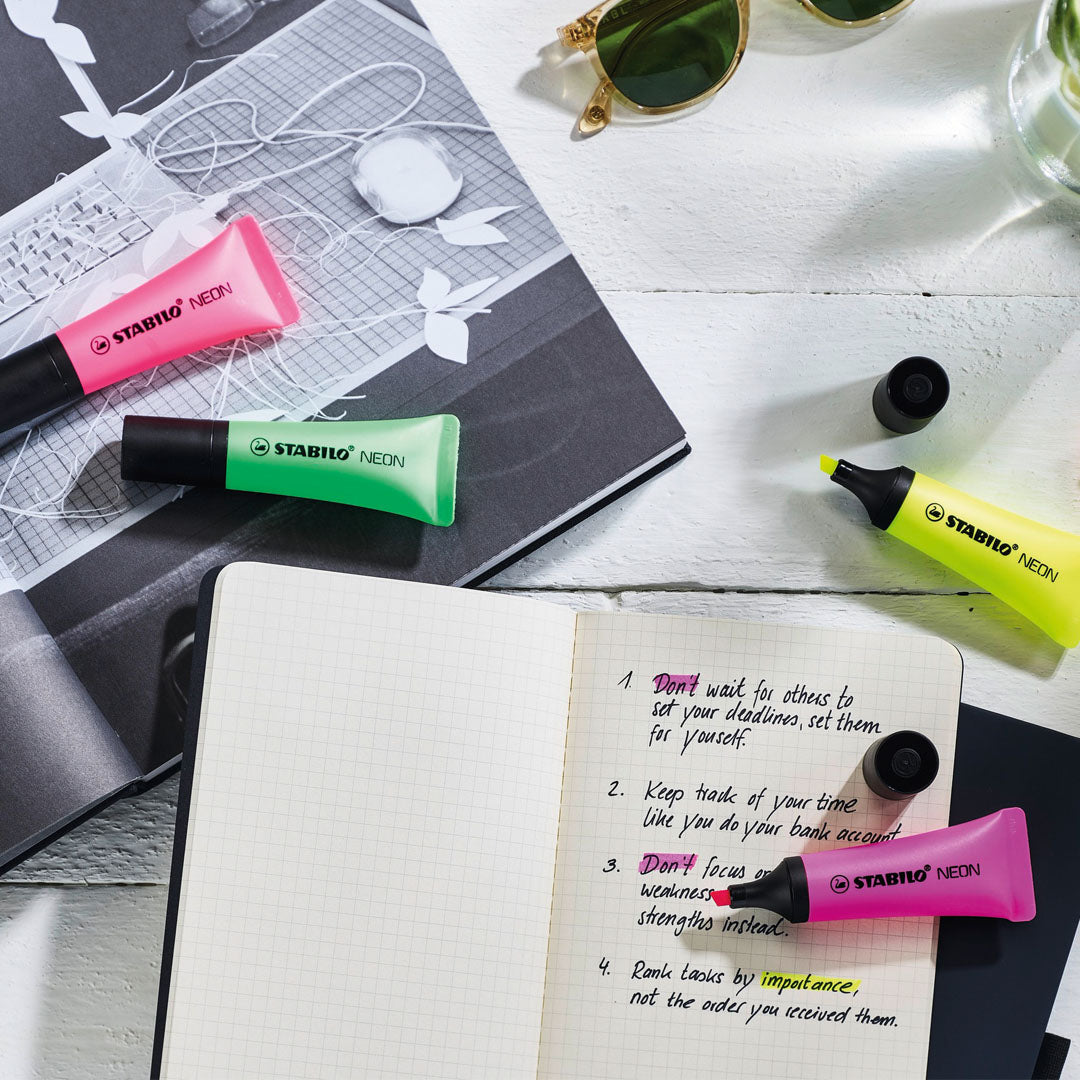 STABILO® NEON
STABILO® NEON
STABILO® NEON
1. Don't wait for others to
set your deadlines, set them
for youself.
2. Keep track of your time
like you do your bank account
3. Don't focus on
weakness
strengths instead.
STABILO® NEON
4. Rank tasks by importance,
not the order you received them.